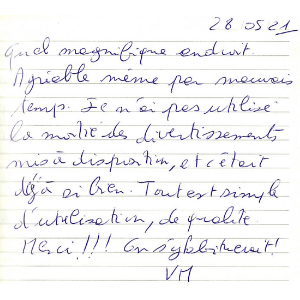 28 05 21
Quel magnifique endroit.
Agréable même par mauvais
temp. Je n'ai pas utilisé
la moitié des divertissements
mis à disposition, et c'était
déjà si bien. Tout est simple
d'utilisation, de qualité.
Merci !!! On s'y habituerait !
VM